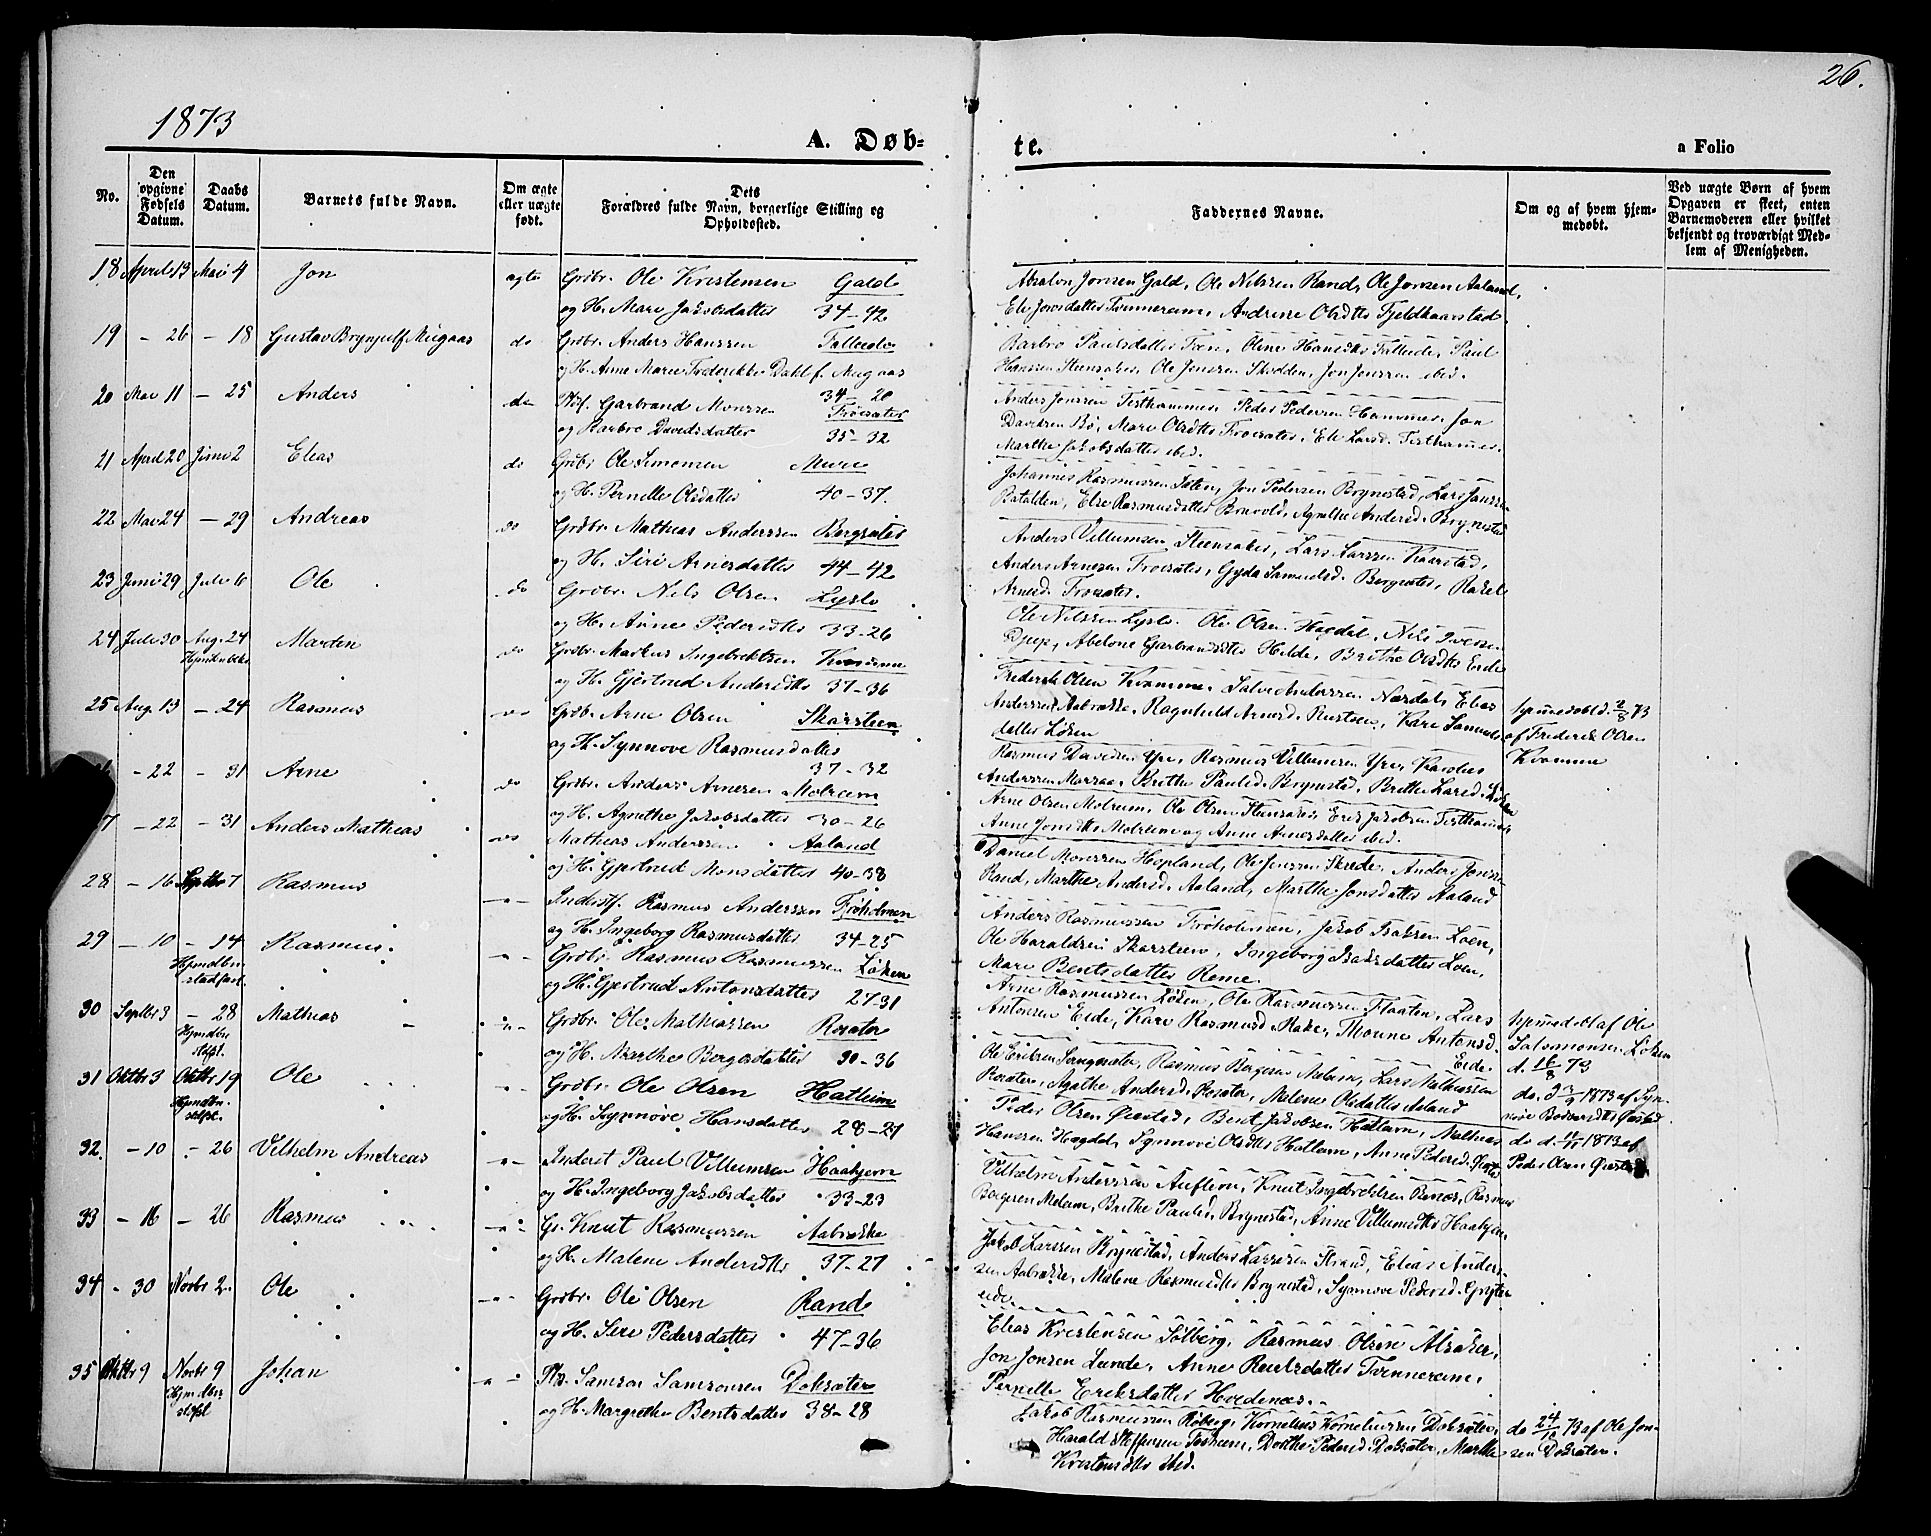 26.
1873
A. Døb-
te.
a Folio
No.
Den opgivne Fødsels Datum.
Daabs Datum.
Barnets fulde Navn.
Om ægte eller uægte født.
Dets Forældres fulde Navn, borgerlige Stilling og Opholdssted.
Faddernes Navne.
Om og af hvem hjemmedøbt.
Ved uægte Børn af hvem Opgaven er skeet, enten Barnemoderen eller hvilket bekjendt og troværdigt Medlem af Menigheden.
18 April 13 Mai 4 Jon ægte Grdbr. Ole Kristensen Gald
og H. Mari Jakobsdatter 34-42
Absalon Jonsen Gald, Ole Nilssen Rand, Ole Jonsen Aaland,
Eli Jonsdatter Tvinnereim, Andrine Olsdtr Fjeldkaarstad
19 - 26 - 18 Gustav Brynjulf Mugaas do Grdbr. Anders Hanssen
og H. Anne Marie Frederikke Dahl f. Mugaas
34 20
Barbro Paulsdatter Oline Hansdtr Paul
Hanssen Ole Jonsen Jon Jonssen ibid.
20 Mai 11 - 25 Anders do Garbrand Monssen Frøisæter
og Barbro Davidsdatter 35-32
Anders Jonsen Tisthammer Peder Pedersen Hammer Jon
Davidsen Bø, Mari Olsdtr Frøisæter, Eli Larsd. Tisthamer
Marthe Jakobsdatter ibid.
21 April 20 Juni 2 Elias do Grdbr Ole Simonsen
og H. Pernille Olsdatter 40-37.
Johannes Rasmussen Jon Pedersen Brynestad, Lars Janssen
Else Rasmusdatter Agnethe Andersd. Brynestad
22 Mai 24 - 29 Andreas do Grdbr Mathias Anderssen Bergsæter
og H. Siri Arnesdatter 44-42
Anders Villumsen Steensaker, Lars Larssen Kaarstad,
Anders Arnesen Frøisæter, Gyda Samuelsd. Bergsæter, Rakel
Arnesd. Frøisæter.
23 Juni 29 Juli 6 Ole do Grdbr. Nils Olsen Lyslo
og H. Anne Pedersdtr 33-26
Ole Nilssen Lyslo. Ole Olsen Hagdal, Nils Iversen
Djup, Abelone Garbrandsdtr Hilde, Brithe Olsdtr Eide
24 Juli 30 Aug. 24 Marten do Grdbr Markus Ingebrektsen Kvamme
og H. Gjertrud Andersdtr 37-36
Frederik Olsen Kvamme. Salve Anderssen Nærdal, Elias
Anderssen Aabrække, Ragnhild Arnesd. Rustøen, Kari Samuels-
datter Løken
hjemmedøbt d. 2/8 73
af Frederik Olsen
Kvamme
25 Aug. 13 - 24 Rasmus do Grdbr. Arne Olsen Skarsteen
og H. Synnøve Rasmusdatter
37-32
Rasmus Davidsen Yri, Rasmus Villumsen Yri, Karolus
Anderssen Brithe Paulsd. Brynestad, Brithe Larsd. Løken
- 22 - 31 Arne do Grdbr. Anders Arnesen Melreim
og H. Agnethe Jakobsdatter 30-26
Arne Olsen Melreim, Ole Olsen Steensaker, Erik Jakobsen Tisthamer
Anne Jonsdtr Melreim og Anne Arnesdatter ibid.
7 - 22 - 31 Anders Mathias do Mathias Anderssen Aaland
og H. Gjertrud Monsdatter 40-38
Daniel Monssen Hopland, Ole Jenssen Skrede. Anders Jonssen
Rand, Marthe Andersd. Aaland, Marthe Jonsdatter Aaland
28 - 16 Septbr 7 Rasmus - " - Inderstf. Rasmus Anderssen Frøholmen
og H. Ingeborg Rasmusdatter 34-25
Anders Rasmussen Frøholmen, Jakob Isaksen Loen,
Ole Haraldsen Skarsteen, Ingeborg Isaksdatter Loen,
Mari Bentsdatter Reme.
29 - 10 - 14 Rasmus. - " - Grdbr. Rasmus Rasmussen Løken
og H. Gjertrud Antonsdatter 27-31
Arne Rasmussen Løken, Ole Rasmussen Flaaten, Lars
Antonsen Eide, Kari Rasmusd. Rake, Thorine Antonsd.
Eide.
hjemmedøbt af Ole
Salomonsen Løken
d. 16/8 73
30 Septbr 3 - 28 Mathias - " - Grdbr. Ole Mathiassen Rosæter
og H. Marthe Bergesdatter 30-36
Ole Eriksen Rasmus Bergesen Melem, Lars Mathiassen
Rosæter, Agathe Andersd. Rosæter, Malene Olsdatter Aaland
do. 1873 af Syn-
nøve Bodvardsdtr
31 Oktbr 3 Oktbr 19 Ole - " - Grdbr Ole Olsen Hatleim
og H. Synnøve Hansdatter 28-27
Peder Olsen Øvestad, Bent Jakobsen Hatleim, Mathias
Hanssen Hagdal, Synnøve Olsdtr Hatleim, Anne Pedersd.
do d. 1873 af
Peder Olsen
32. - 10 - 26 Vilhelm Andreas - " - Inderst Paul Villumsen Haahjem
og H. Ingeborg Jakobsdatter 33-23
Vilhelm Anderssen Auflem, Knut Ingebrektsen Rasmus
Bergesen Melem, Brithe Paulsd. Brynestad, Anne Villumsdtr Haahjem
33 - 16 - 26 Rasmus - " - Gr. Knut Rasmussen Aabrække
og H. Malene Andersdtr 37-27
Jakob Larssen Brynestad, Anders Larssen Strand, Elias Anders-
sen Aabrække, Malene Rasmusdtr Brynestad, Synnøve Pedersd. Gryter
eide.
34 - 30 Novbr 2. Ole - " - Grdbr. Ole Olsen Rand
og H. Siri Pedersdatter 47-36
Elias Kristensen Solberg, Rasmus Olsen Alsaker,
Jon Jonsen Lunde, Anne Tvinnereim,
Pernille Eriksdatter Hvidenæs.
35 Oktbr 9 Novbr 9 Johan - " - Samson Samsonsen Doksæter
og H. Margrethe Bentsdatter 38-28
Jakob Rasmussen Røberg, Kornelius Korneliussen Doksæter,
Harald Steffensen Dorthe Pedersd. Doksæter, Marthe
Kristensdtr ibid.
do 24/10 73 af Ole Jon-
sen Doksæter.